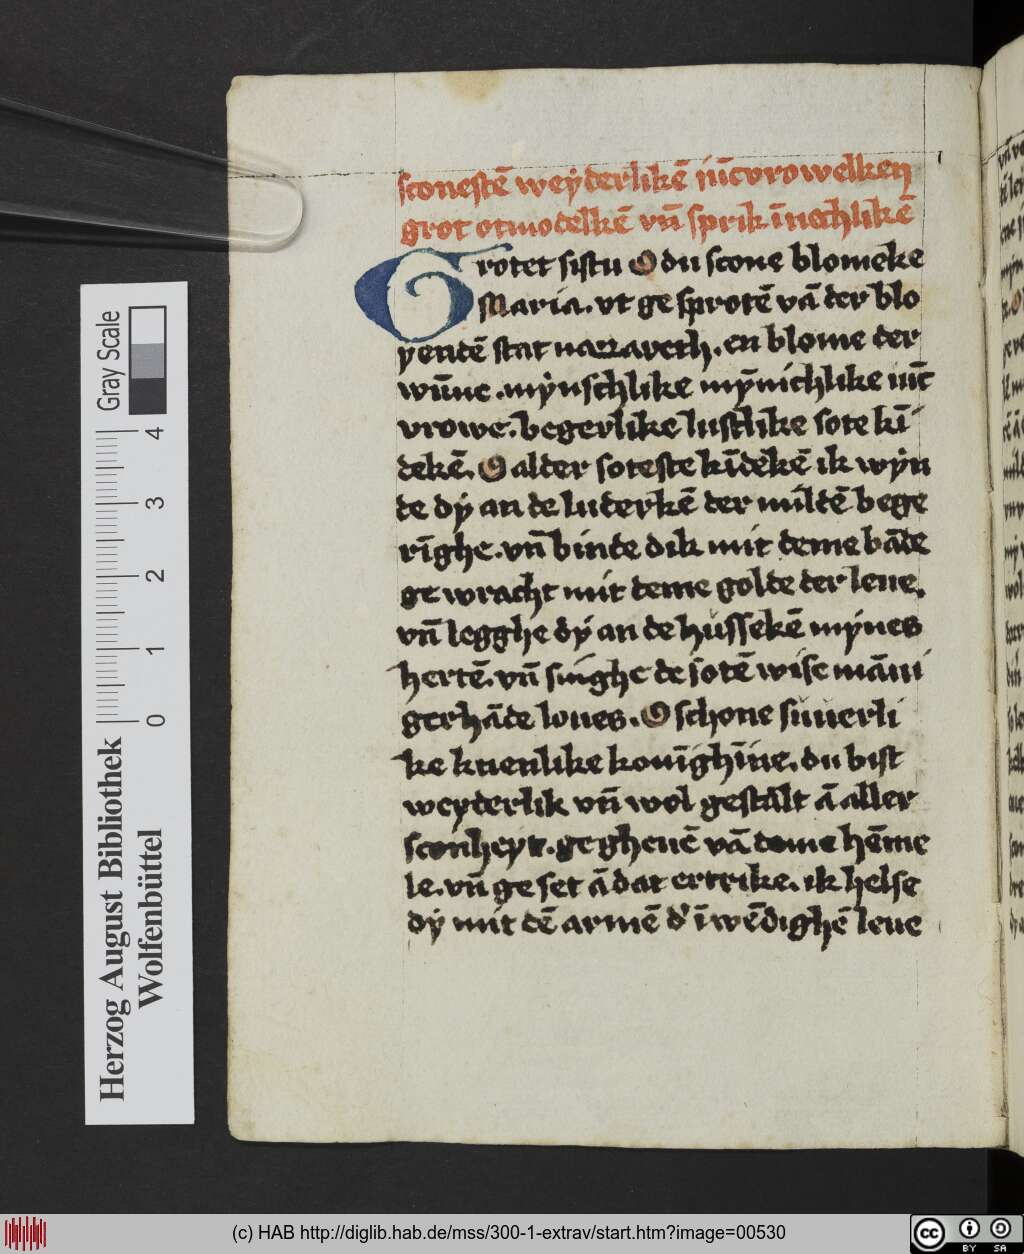 sconestē weẏderlikē iūcvrowelken
grot otmodelkē vn̄ sprik īnechlikē
Grotet sistu O du scone blomeke
Maria. vt ge sprotē vā der blo
yendē stat nazzareth. en blome der
wūne. mẏnschlike mẏ̄nichlike iūc
vrowe. begerlike lustlike sote kī
dekē. O alder soteste kīdekē ik wẏn
de dẏ an de luderkē der mildē bege
rīghe. vn̄ binde dik mit deme bāde
ge wracht mit deme golde der leue.
vn̄ legghe dẏ an de hussekē mẏnes
hertē. vn̄ singhe de sotē wise māni
gerhāde loues. O schone suuerli
ke kuenlike konīghīne. du bist
weyderlik vn̄ wol gestalt ā aller
sconheyt. ge gheuē vā deme hēme
le. vn̄ ge set ā dat ertrike. ik helse
dẏ mit dē armē d' ī wēdighē leue
Gray Scale
4
3
2
1
0
Herzog August Bibliothek
Wolfenbüttel
(c) HAB http://diglib.hab.de/mss/300-1-extrav/start.htm?image=00530
cc
BY SA